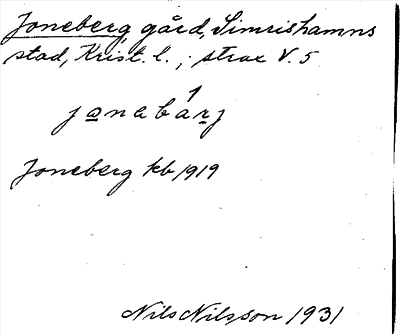 Joneberg gård, Simrishamns
stad, Krist. l. ; strax V. 5
1
jonebárj
Joneberg kb 1919
Nils Nilsson 1931